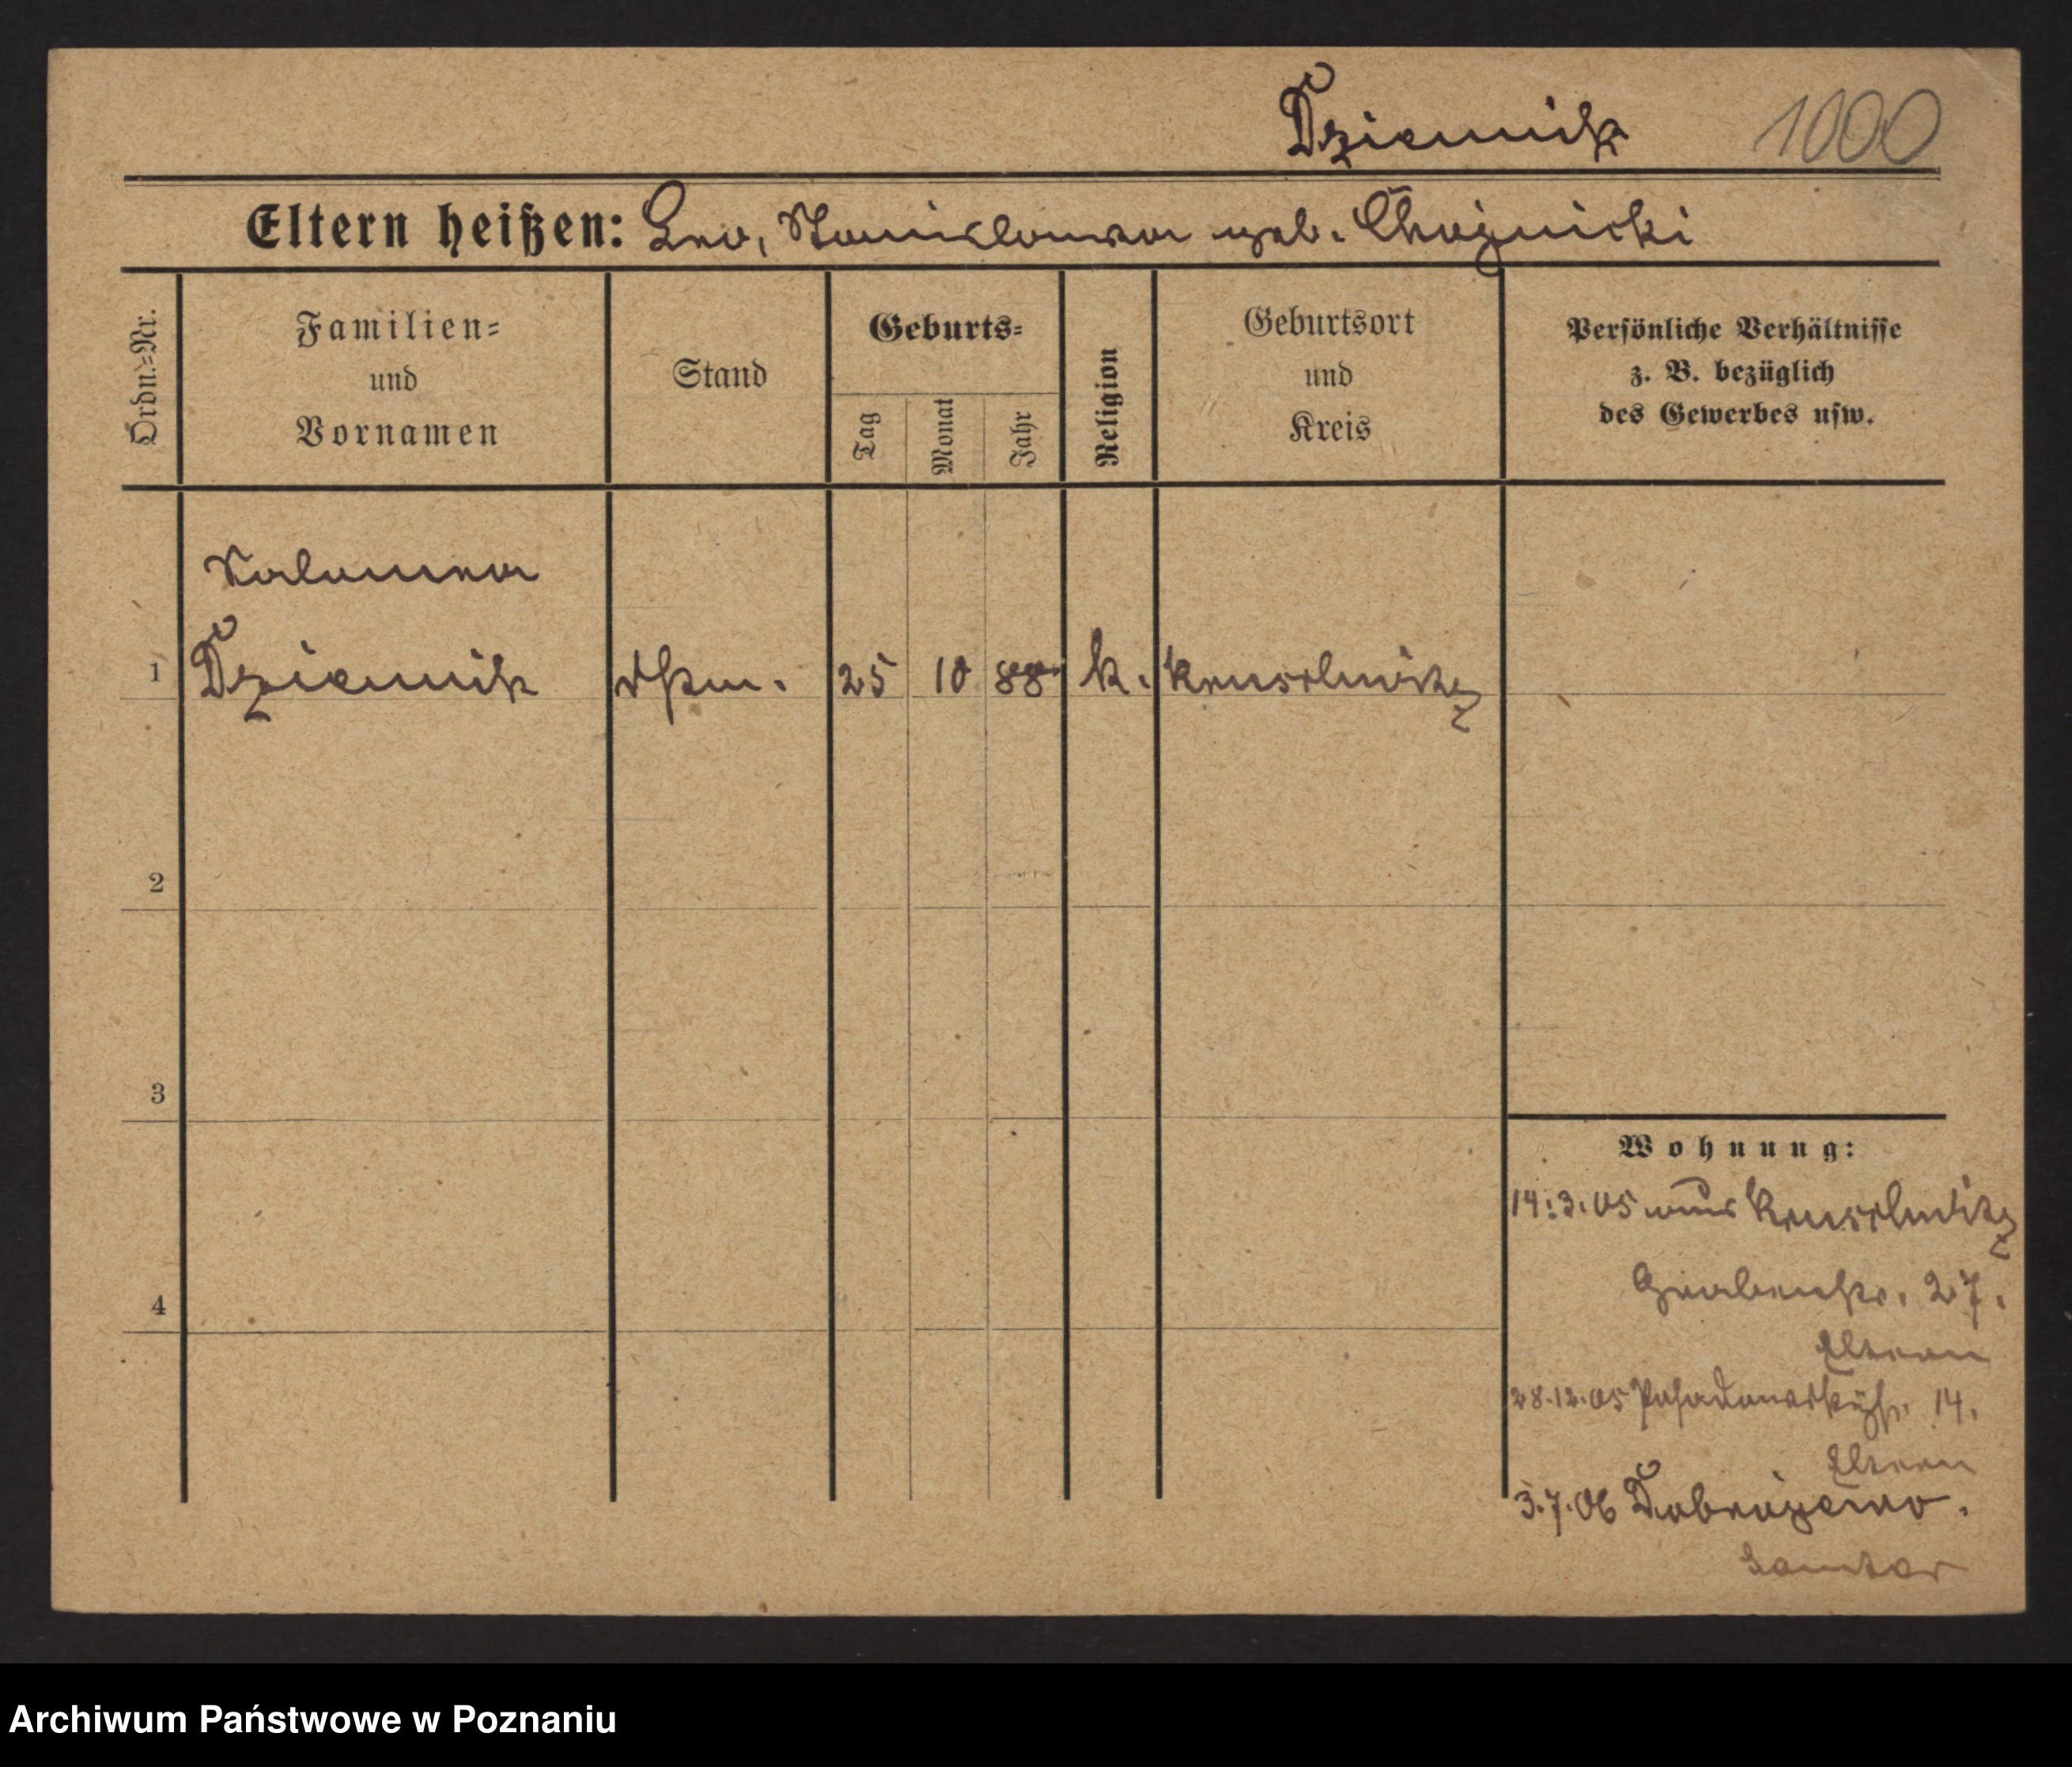 Dziennik 1000
Eltern heißen: Leo, Stanislawa geb. Choynicki
Ordn.=Nr.
Familien=
und
Vornamen
Stand
Geburts=
Tag
Monat
Jahr
Religion
Geburtsort
und
Kreis
Persönliche Verhältnisse
z. B. bezüglich
des Gewerbes usw.
Salomea
1 Dziennik 25 10 88 k. Kruschwitz
2
3
4
Wohnung:
14.3.05 aus Kruschwitz
Grabenstr. 27.
Eltern
28.12.05 14.
Eltern
3.7.06
Archiwum Państwowe w Poznaniu